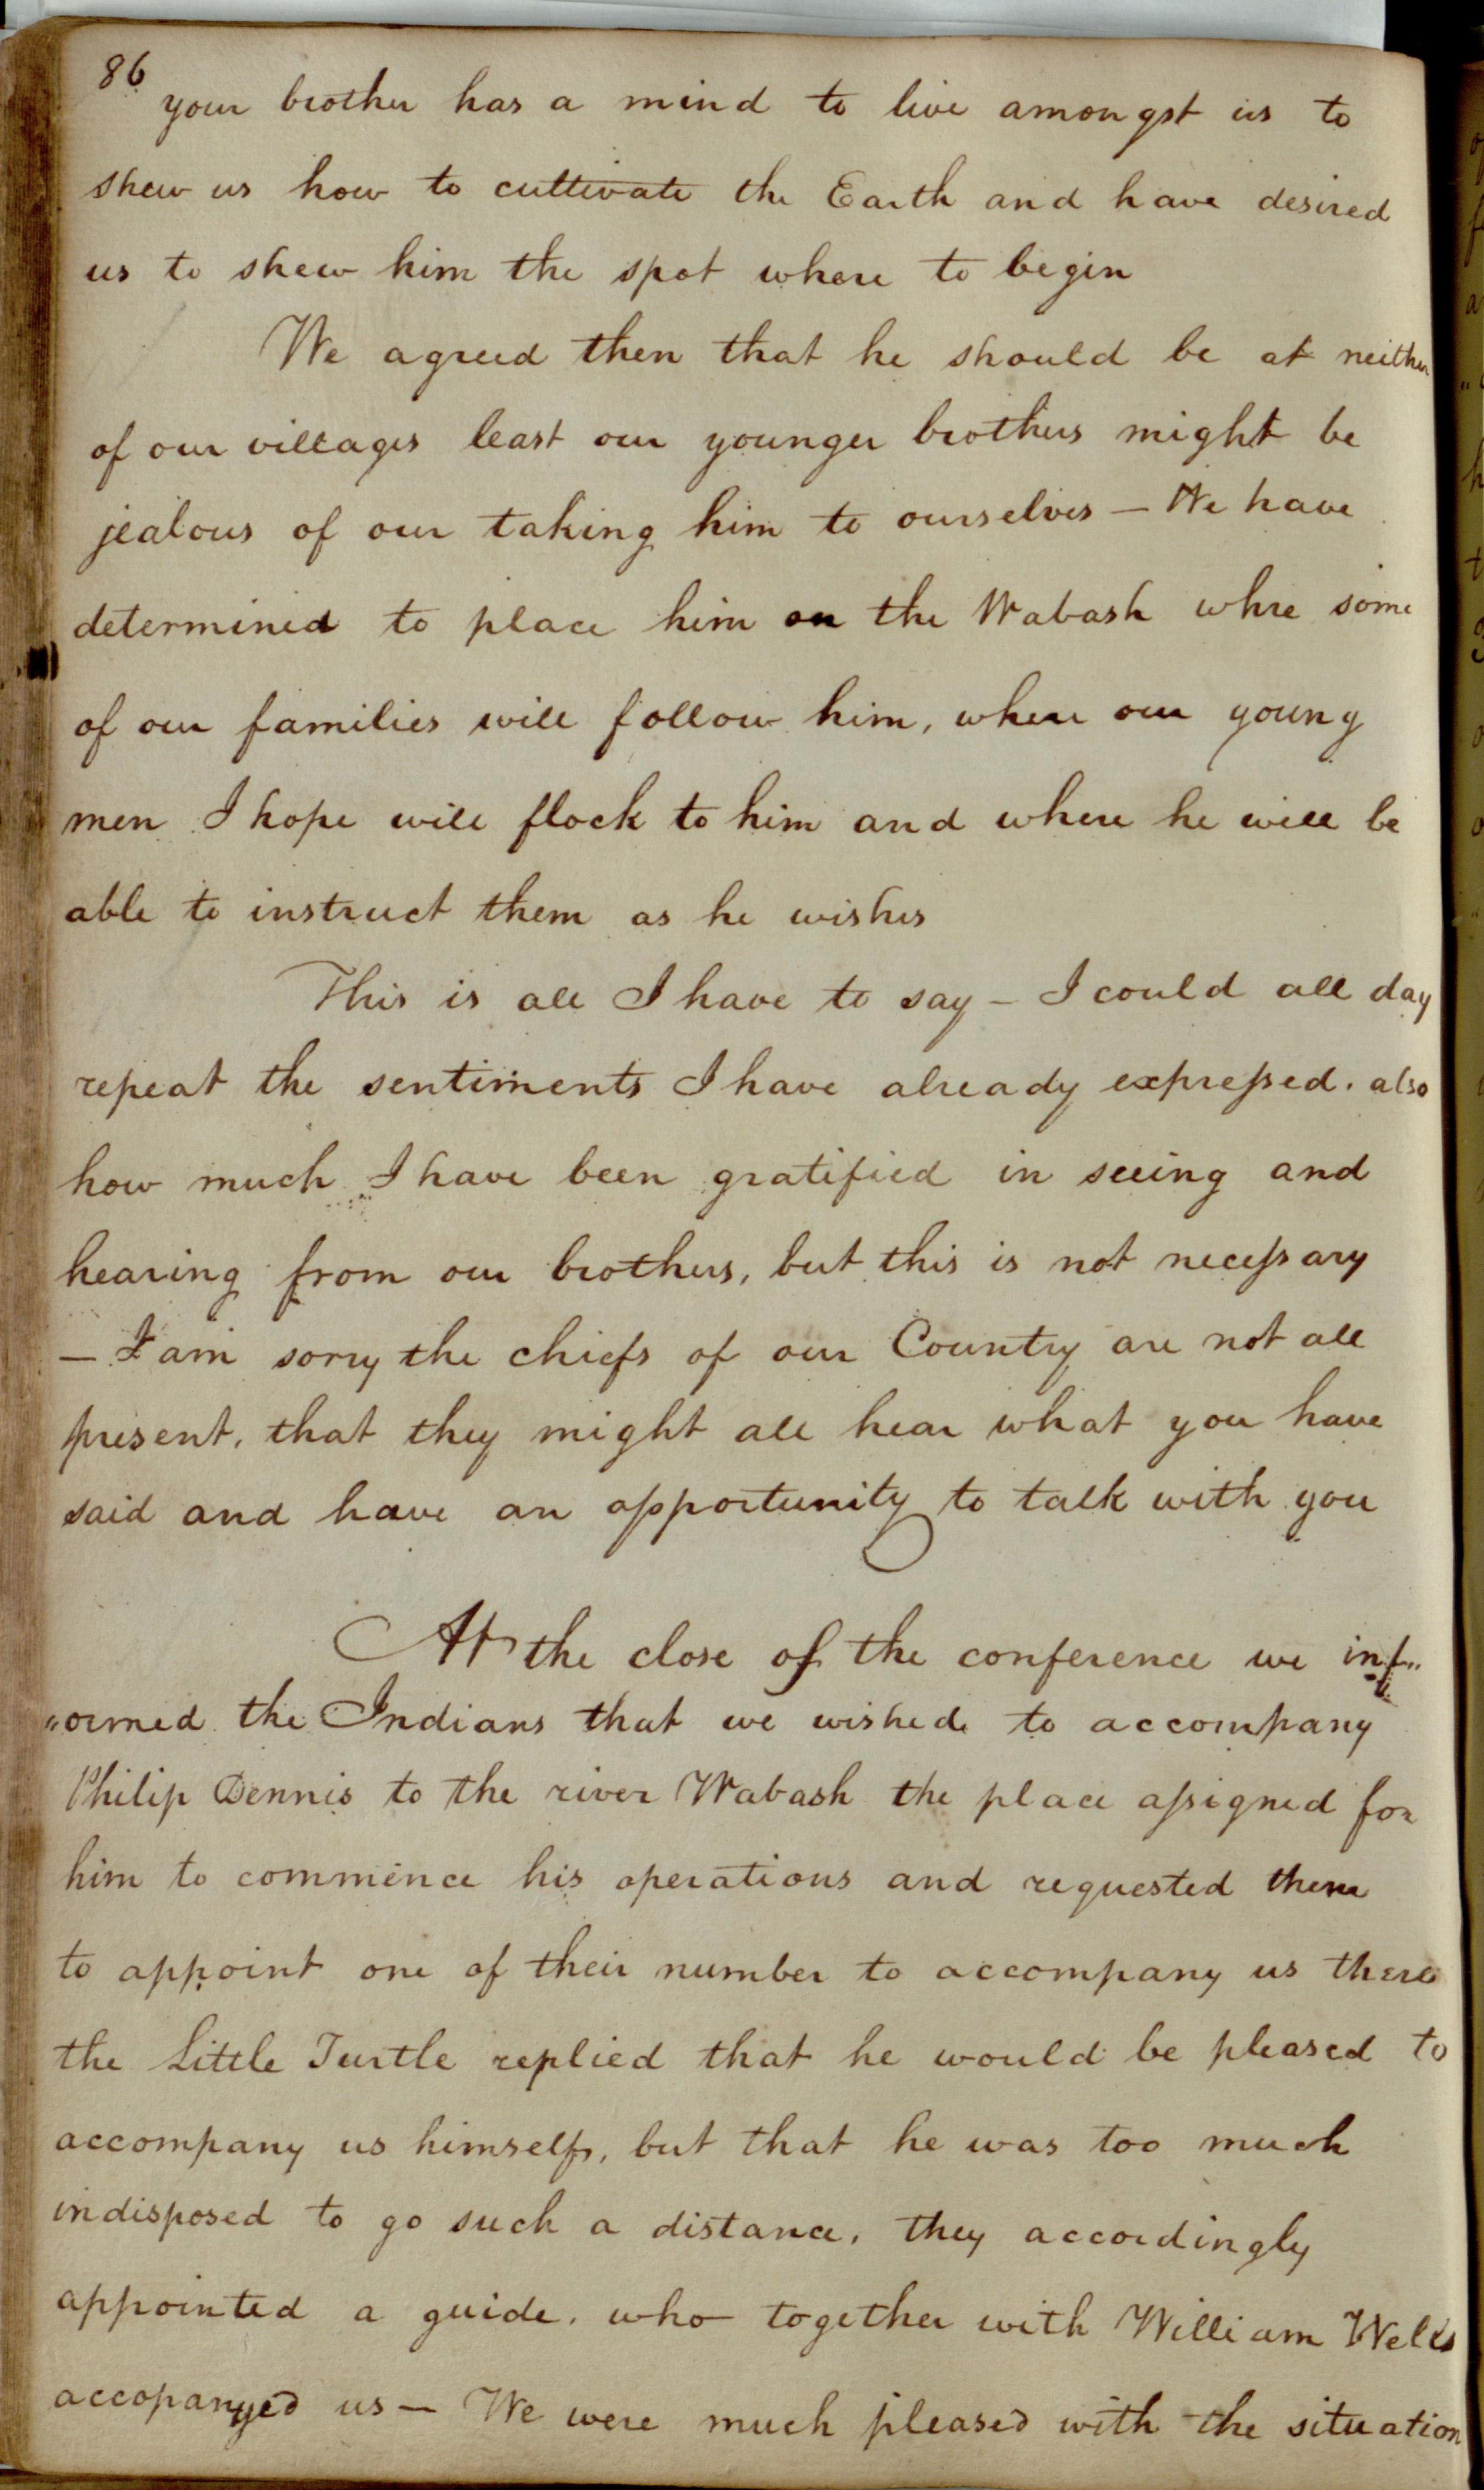 86
your brother has a mind to live amongst us to
shew us how to cultivate the Earth and have desired
us to shew him the spot where to begin
We agreed then that he should be at neither
of our villages least our younger brothers might be
jealous of our taking him to ourselves — We have
determined to place him on the Wabash whre some
of our families will follow him, where our young
men I hope will flock to him and where he will be
able to instruct them as he wishes
This is all I have to say — I could all day
repeat the sentiments I have already expressed. also
how much I have been gratified in seeing and
hearing from our brothers, but this is not necessary
— I am sorry the chiefs of our Country are not all
present, that they might all hear what you have
said and have an opportunity to talk with you
At the close of the conference we inf„
„ormed the Indians that we wished to accompany
Philip Dennis to the river Wabash the place assigned for
him to commence his operations and requested them
to appoint one of their number to accompany us there
the Little Turtle replied that he would be pleased to
accompany us himself, but that he was too much
indisposed to go such a distance, they accordingly
appointed a guide, who together with William Wells
accopanyed us — We were much pleased with the situation